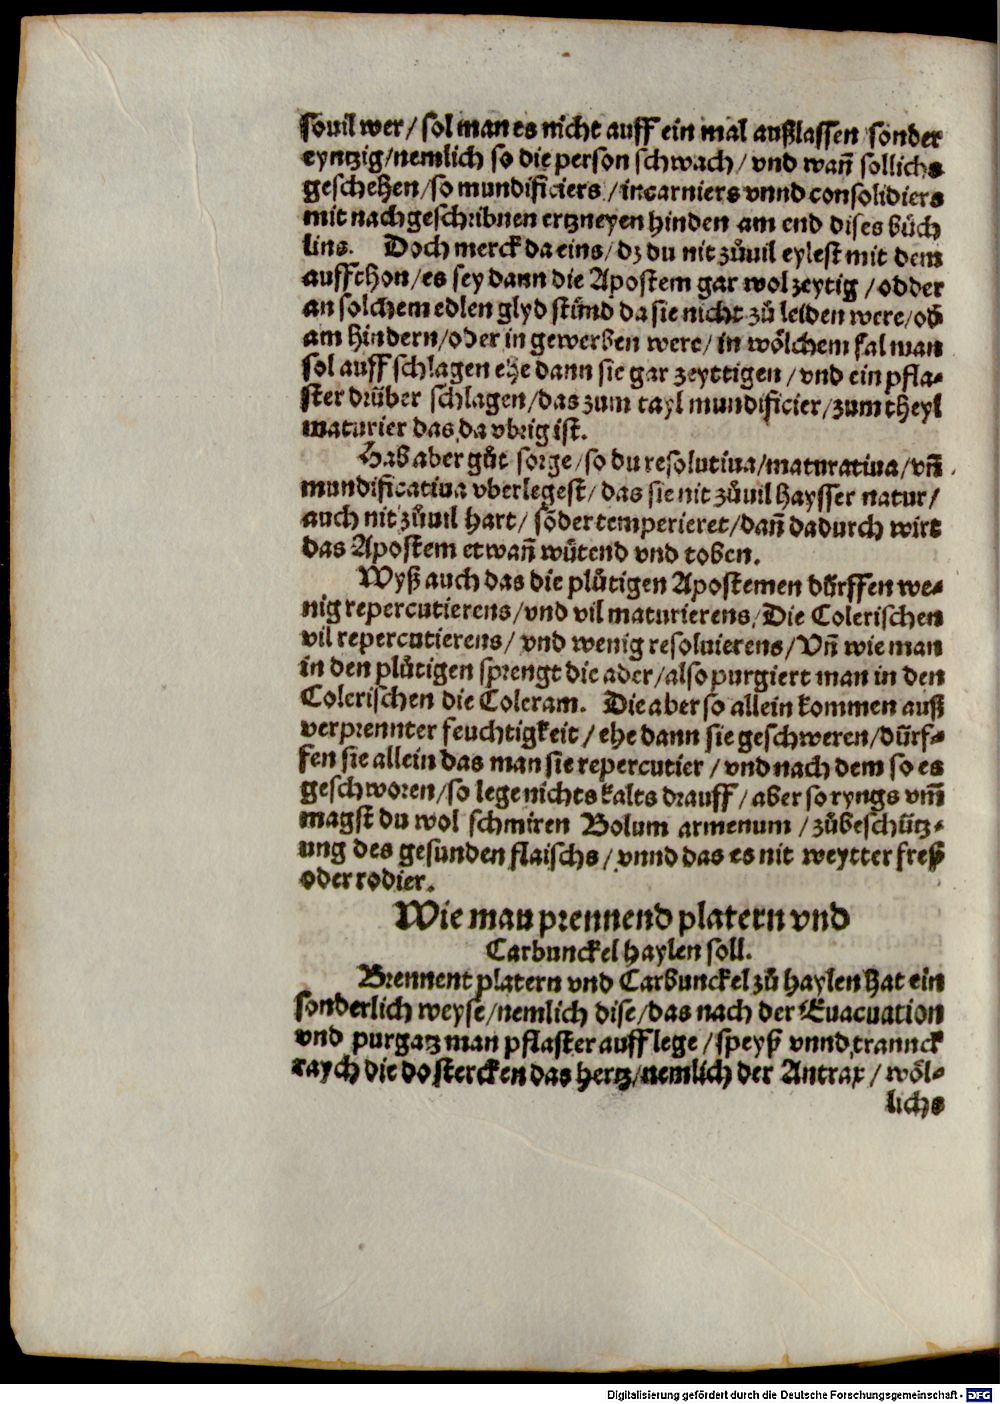 souil wer / sol man es nicht auff ein mal außlassen / sonder
eyntzig / nemlich so die person schwach / vnd wañ sollichs
geschehen / so mundificiers / incarniers vnnd consolidiers
mit nachgeschribnen ertzneyen hinden am end dises bůch
lins. Doch merck da eins / dz du nit zůuil eylest mit dem
auffthon / es sey dann die Apostem gar wol zeytig / odder
an solchem edlen glyd stůnd da sie nicht zů leiden were / od̕
am hindern / oder in gewerben were / in wȯlchem fal man
sol auff schlagen ehe dann sie gar zeyttigen / vnd ein pfla⸗
ster drüber schlagen / das zum tayl mundificier / zum theyl
maturier das da vbrig ist.
Hab aber gůt sorge / so du resolutiua / maturatiua / vñ
mundificatiua vberlegest / das sie nit zůuil haysser natur /
auch nit zůuil hart / sõder temperieret / dañ dadurch wirt
das Apostem etwañ wütend vnd toben.
Wyß auch das die plůtigen Apostemen dürffen we⸗
nig repercutierens / vnd vil maturierens / Die Colerischen
vil repercutierens / vnd wenig resoluierens / Vñ wie man
in den plůtigen sprengt die ader / also purgiert man in den
Colerischen die Coleram. Die aber so allein kommen auß
verprennter feuchtigkeit / ehe dann sie geschweren / dürf⸗
fen sie allein das man sie repercutier / vnd nach dem so es
geschworen / so lege nichts kalts drauff / aber so ryngs vm̃
magst du wol schmiren Bolum armenum / zůbeschütz⸗
ung des gesunden flaischs / vnnd das es nit weytter freß
oder rodier.
Wie man prennend platern vnd
Carbunckel haylen soll.
Brennent platern vnd Carbunckel zů haylen hat ein
sonderlich weyse / nemlich dise / das nach der Euacuation
vnd purgatz man pflaster auff lege / speyß vnnd tranck
raych die do stercken das hertz / nemlich der Antrax / wȯl⸗
lichs
Digitalisierung gefördert durch die Deutsche Forschungsgemeinschaft - DFG